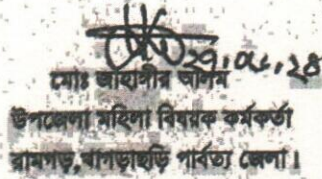 ২৭.০৫.২৪
মোঃ জাহাঙ্গীর আলম
উপজেলা মহিলা বিষয়ক কর্মকর্তা
রামগড়, খাগড়াছড়ি পার্বত্য জেলা।